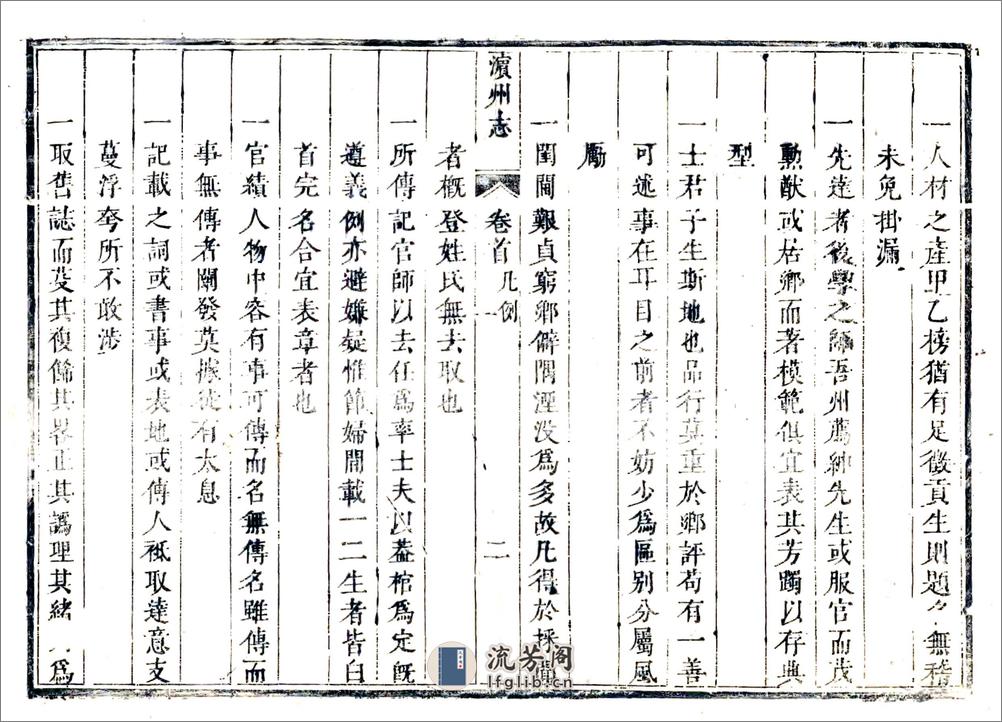 一人材之產甲乙榜猶有足徵貢生則題名無稽
未免掛漏
一先達者後學之師吾州薦紳先生或服官而茂
勳猷或居鄉而著模範俱宜表其芳躅以存典
型
一士君子生斯地也品行莫重於鄉評苟有一善
可述事在耳目之前者不妨少爲區别分屬風
勵
一閨閫艱貞窮鄉僻隅湮没爲多故凡得於採
者槪登姓氏無去取也
濵州志 卷首 凡例 二
一所傳記官師以去任爲率士夫以葢棺爲定旣
遵義例亦避嫌疑惟節婦間載一二生者皆白
首完名合宜表章者也
一官績人物中容有事可傳而名無傳名雖傳而
事無傳者闡發莫據徒有太息
一記載之詞或書事或表地或傳人祗取達意支
蔓浮夸所不敢涉
一取舊誌而芟其複餙其畧正其譌理其緒 爲
流芳阁
lfglib.cn